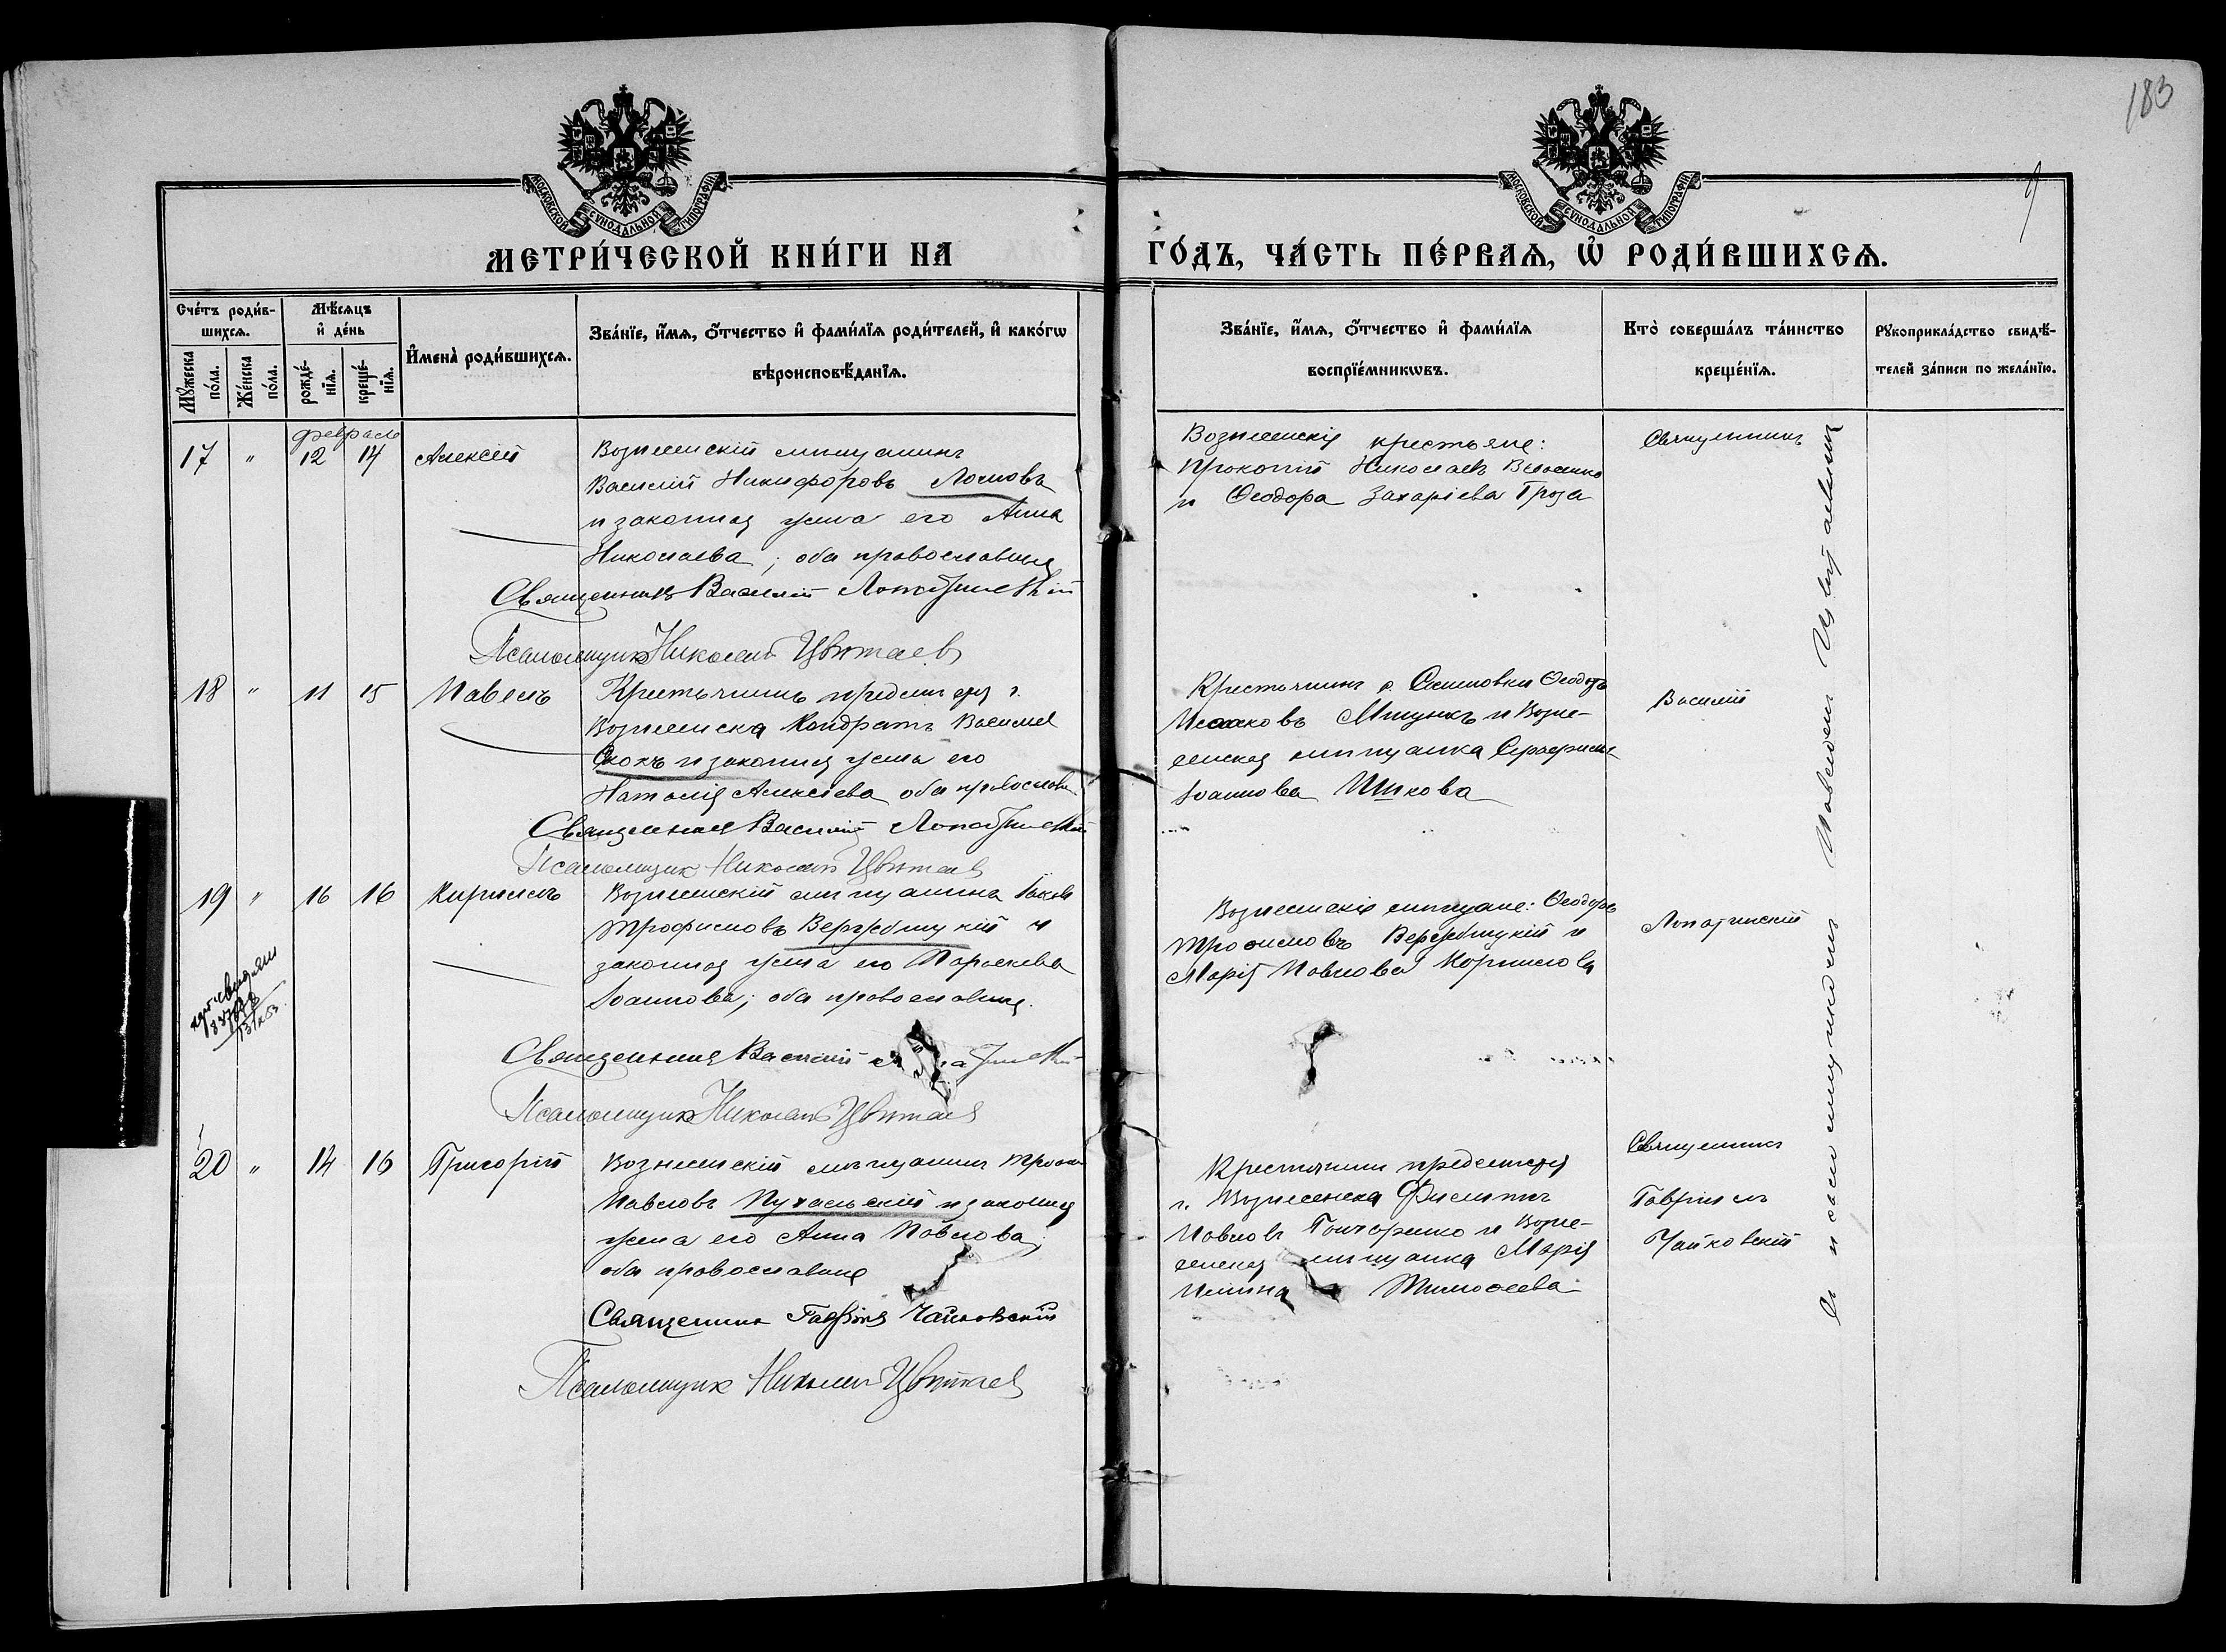 183
9
МОСКОВСКОЙ СѴНОДАЛЬНОЙ ТИПОГРАФІИ
МОСКОВСКОЙ СѴНОДАЛЬНОЙ ТИПОГРАФІИ
МЕТРИ́ЧЕСКОЙ КНИ́ГИ НА
ГО́ДЪ, ЧА́СТЬ ПЕ́РВАѦ, Ѡ҆ РОДИ́ВШИХСѦ.
Сче́тъ роди́в-
шихсѧ.
Мꙋ́жеска по́ла.
Же́нска по́ла.
Мѣ́сѧцъ
и҆ де́нь
рожде́-
нїѧ.
креще́-
нїѧ.
И҆мена̀ роди́вшихсѧ.
Зва́нїе, и҆́мѧ, ѻ҆́тчество и҆ фами́лїѧ роди́телей, и҆ како́гѡ
вѣроисповѣ́данїѧ.
Зва́нїе, и҆́мѧ, ѻ҆́тчество и҆ фами́лїѧ
воспрїе́мникѡвъ.
Кто̀ соверша́лъ та́инство
креще́нїѧ.
Рꙋкоприкла́дство свидѣ́-
телей за́писи по жела́нїю.
февраль
17 " 12 14 Алексѣй
Вознесенскій мѣщанинъ
Василій Никифоровъ Ломовъ
и законная жена его Анна
Николаева; оба православные
Священникъ Василій Лопатинскій
Псаломщикъ Николай Цвѣтаевъ
Вознесенскіе крестьяне:
Прокопій Николаевъ
и Ѳеодора Захаріева Гроза
Священникъ
18 " 11 15 Павелъ
Крестьянинъ предмистья г.
Вознесенска Кондратъ Васильевъ
Скокъ и законная жена его
Наталія Алексѣева оба православн.
Священникъ Василій Лопатинскій
Псаломщик Николай Цвѣтаев
Крестьянинъ с. Ѳеодоръ
Исааковъ и Возне-
сенская мѣщанка Серафима
Іоаннова Ишкова
Василій
19 " 16 16 Кириллъ
Вознесенскій мѣщанинъ Іаковъ
Трофимовъ Вержбицкій и
законная жена его Параскева
Іоаннова; оба православные.
Священникъ Василій Лопатинскій
Псаломщикъ Николай Цвѣтаев
Вознесенскіе мѣщане: Ѳеодоръ
Трофимовъ Вержбицкій и
Марія Павлова Корнилова
Лопатинскій
20 " 14 16 Григорій
Вознесенскій мѣщанинъ
Павловъ Пухальскій и законная
жена его Анна Павлова;
оба православные
Священник Гавріилъ Чайковскій
Псаломщик Николай Цвѣтаев
Крестьянинъ предмистья
г. Вознесенска Филиппъ
Павловъ Гончаренко и Возне-
сенская мѣщанка Марія
Ильина Тимоѳеева
Священникъ
Гавріилъ
Чайковскій
съ псаломщикомъ Николаемъ Цвѣтаевымъ